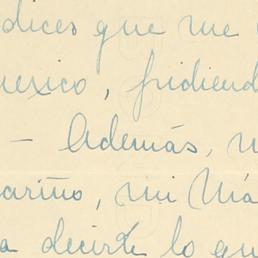 dices que me
mexico, pidiend
— Además,
cariño, mi Má
a decirte lo qu